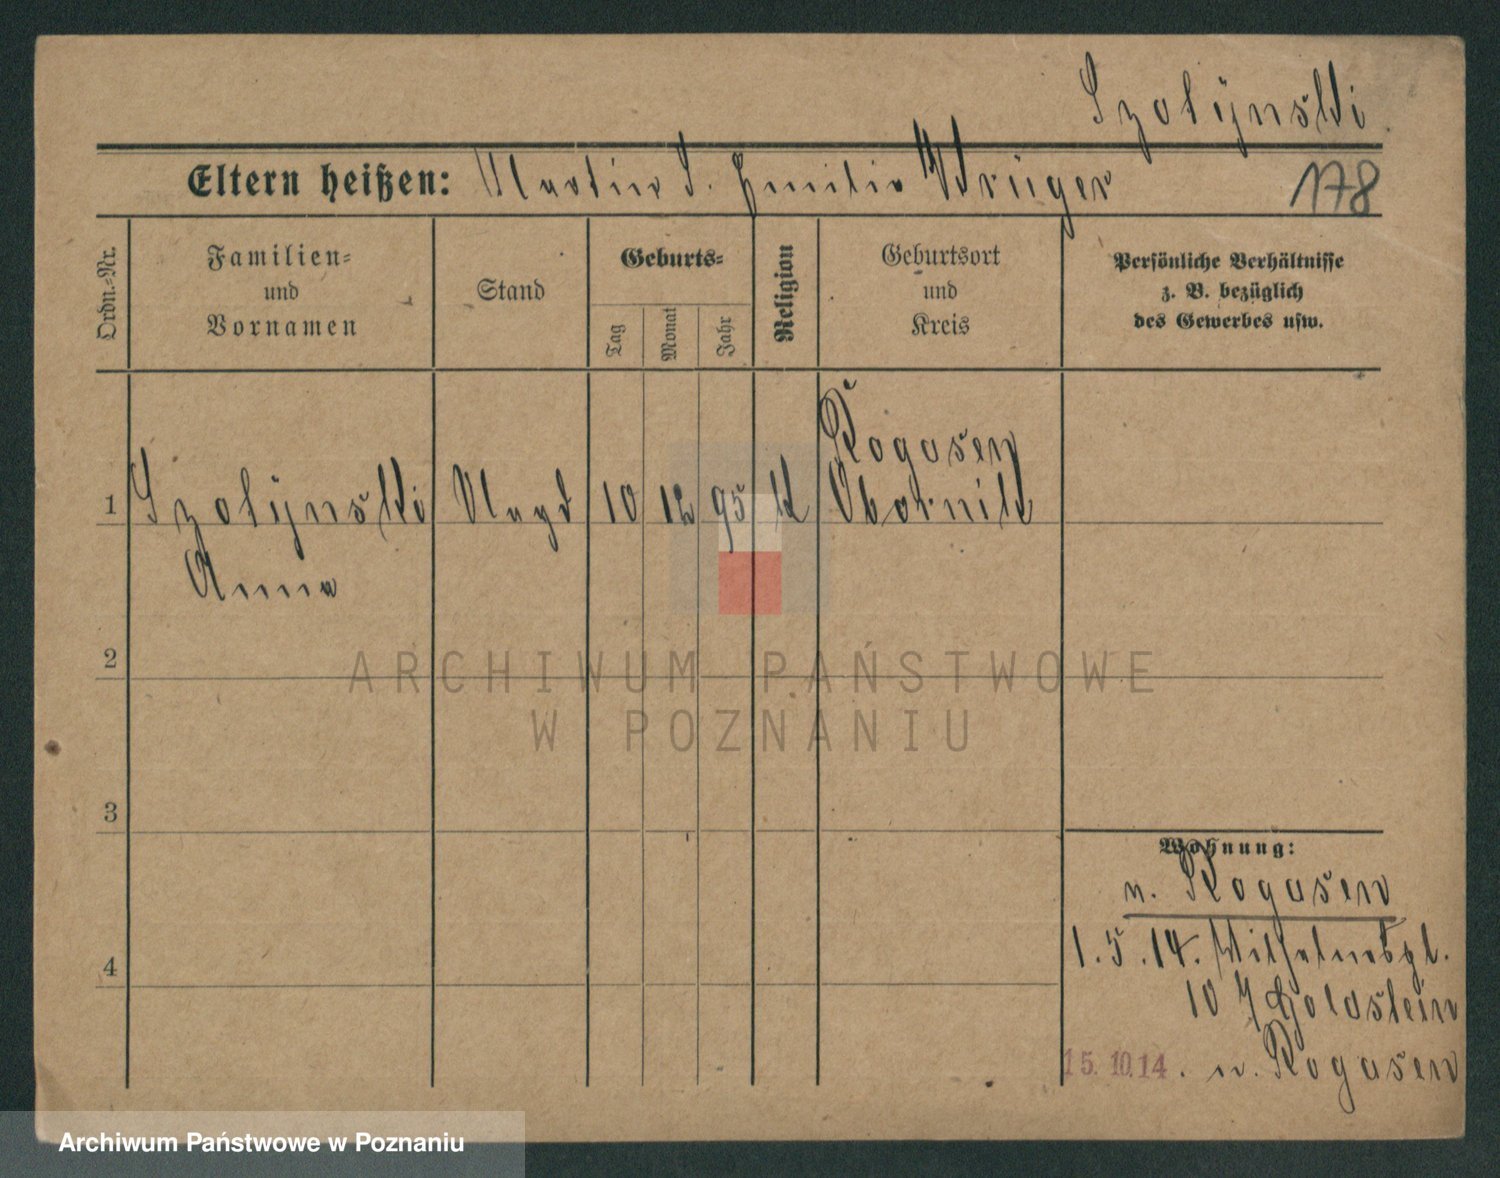 Szotynski
Eltern heißen: Martin S. Emilie Krüger
178
Ordn.-Nr.
Familien-
und
Vornamen
Stand
Geburts-
Tag
Monat
Jahr
Religion
Geburtsort
und
Kreis
Persönliche Verhältnisse
z. B. bezüglich
des Gewerbes usw.
Rogasen
1 Szotynski Magd 10 12 95 k Obornik
Anna
2
3
4
Wohnung:
n. Rogasen
1.5.14. Wilhelmspl.
10 Goldstein
15.10.14. n. Rogasen
ARCHIWUM PAŃSTWOWE
W POZNANIU
Archiwum Państwowe w Poznaniu